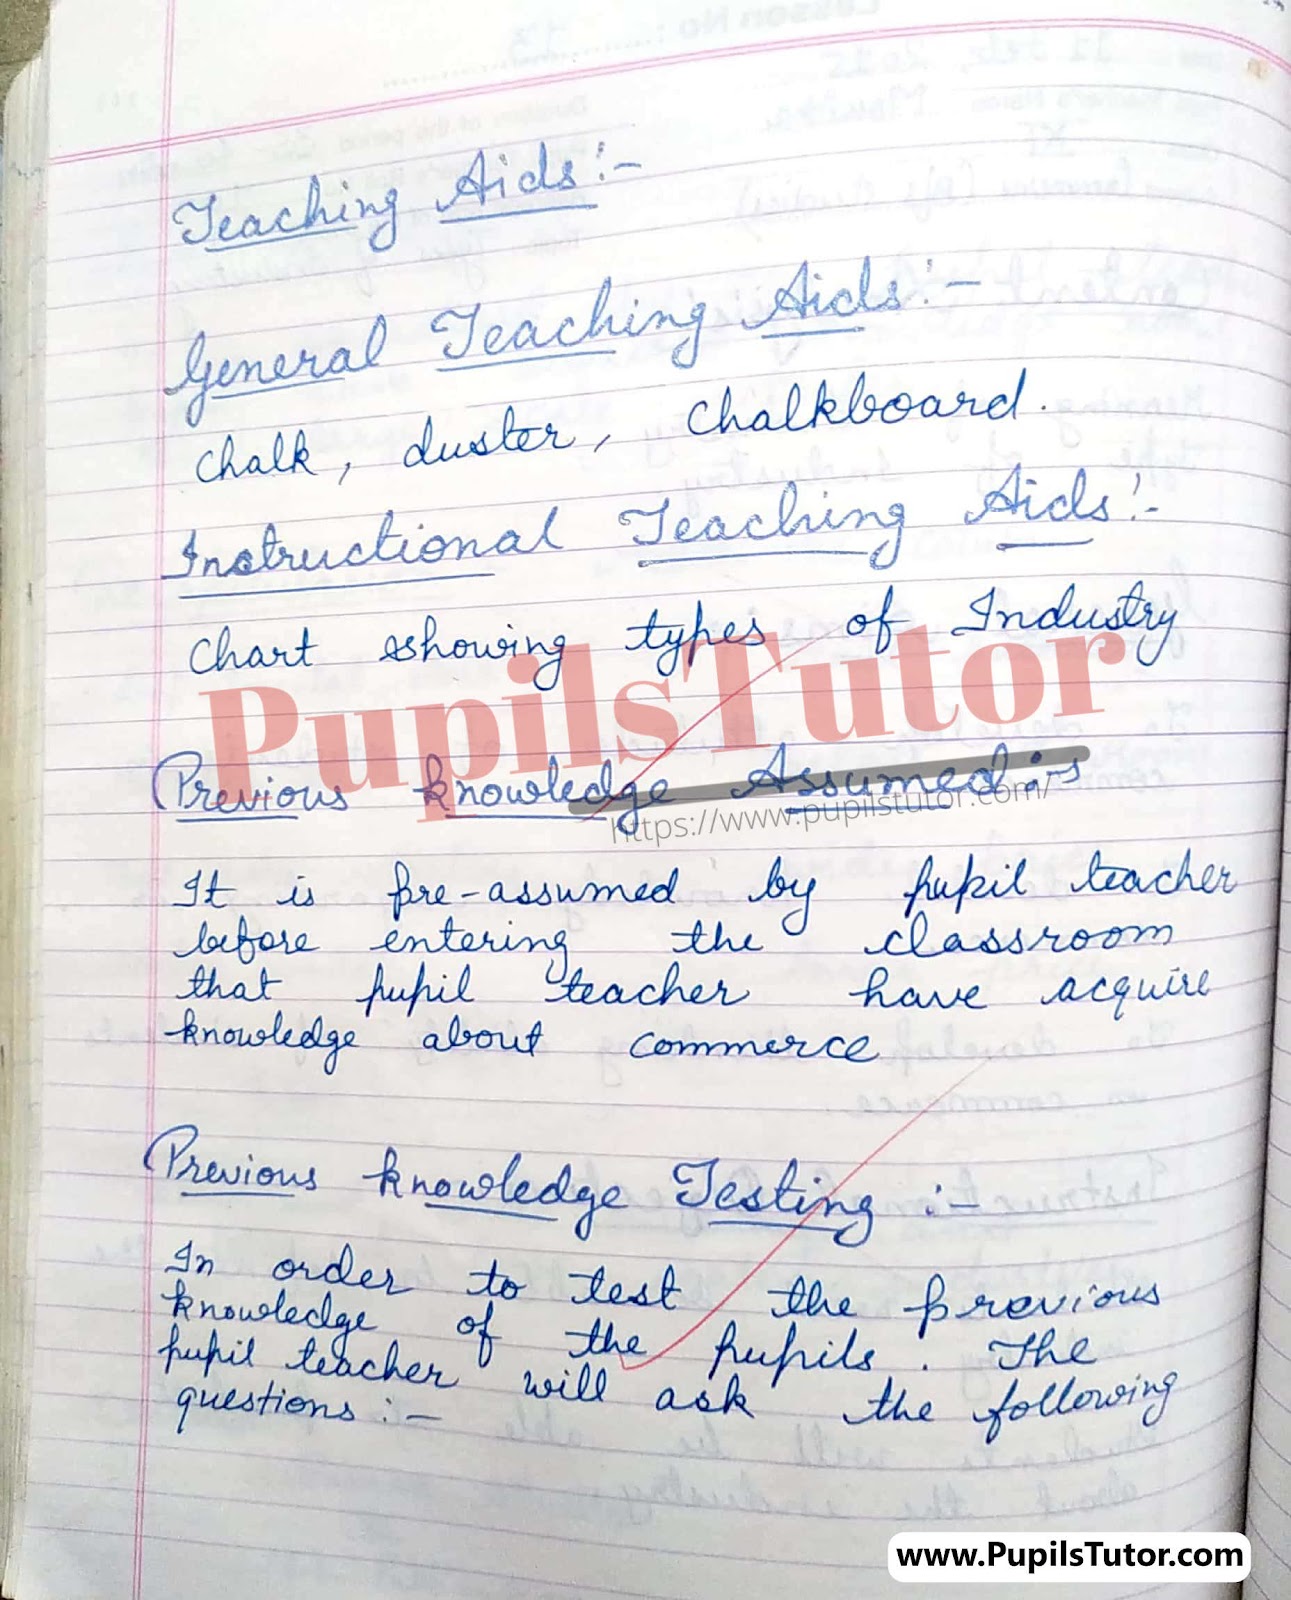 Teaching Aids:-
General Teaching Aids:-
Chalk, duster, Chalkboard.
Instructional Teaching Aids:-
Chart showing types of Industry
PupilsTutor
Previous knowledge Assumed:-
https://www.pupilstutor.com/
It is pre-assumed by pupil teacher
before entering the classroom
that pupil teacher have acquire
knowledge about commerce
Previous knowledge Testing :-
In order to test the previous
knowledge of the pupils. The
pupil teacher will ask the following
questions:-
www.PupilsTutor.com